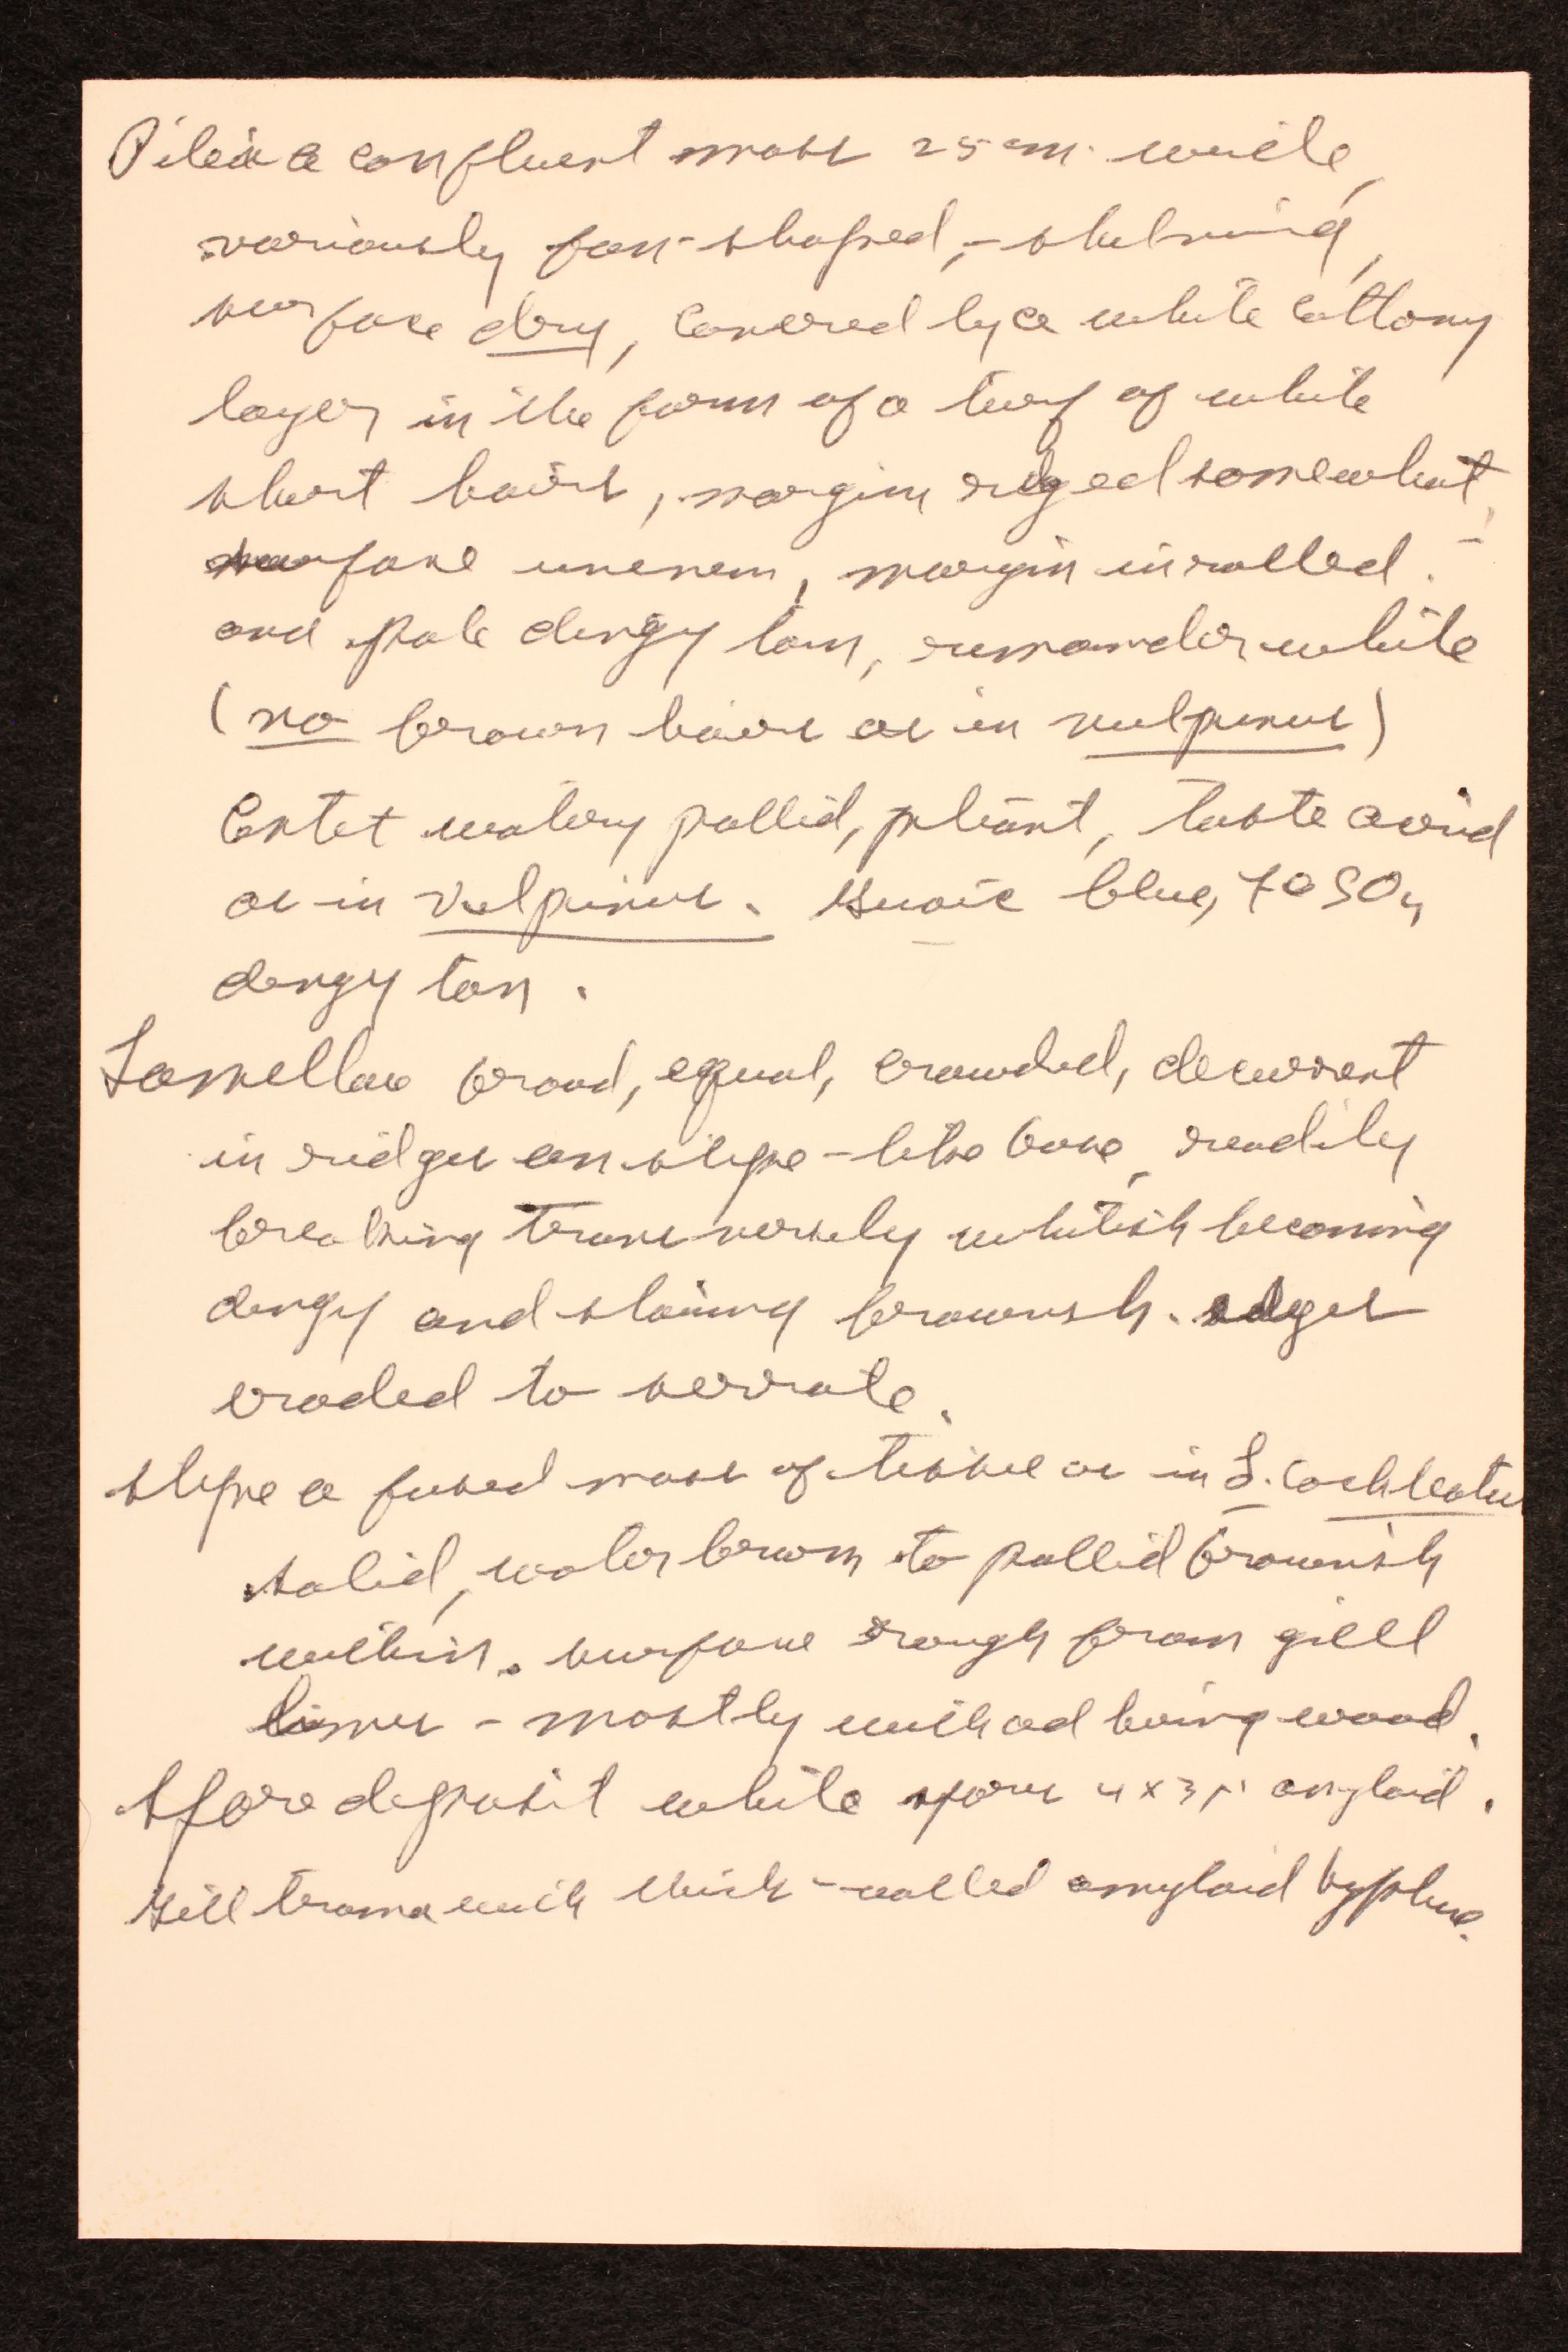 Pilei a confluent mass 25 cm. wide,
variously fan-shaped, - shelving,
surface dry, covered by a white cottony
layer in the form of a turf of white
short hairs, margin ridged somewhat,
surface uneven, margin inrolled.
and pale dingy tan, remainder white
(no brown hairs as in vulpinus)
Contex watery pallid, pliant, taste acrid
as in vulpinus. Guaic blue, FeSO4
dingy tan.
Lamellae broad, equal, crowded, decurrent
in ridges on stipe-like base, readily
breaking transversely whitish becoming
dingy and staining brownish. edges
eroded to serrate.
Stipe a fused mass of tissue as in L. cochleatus
solid, water brown to pallid brownish
within. surface rough from gill
lines - mostly with adhering wood.
Spore deposit white spores 4 x 3 µ amyloid.
Gill trama with thick-walled amyloid hyphae.